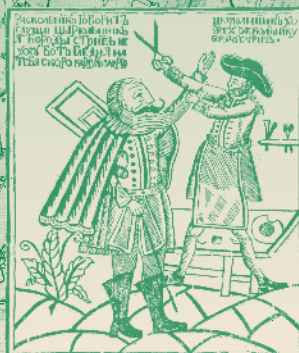 РАСКОЛНИКЪ ГОВОРИТЪ
СЛУШАИ ЦЫРЮЛНИКЪ
Я БОРОДЫ СТРИЧЬ НЕ
ХОЧУ ВОТЪ ГЛЯДИ Я НА
ТЕБЯ СКОРО КАРАУЛ ЗАКРИЧУ
ЦЫРЮЛНИКЪ ХО
ЧЕТЪ РАСКОЛНИКУ
БОРОДУ СТРИЧЬ